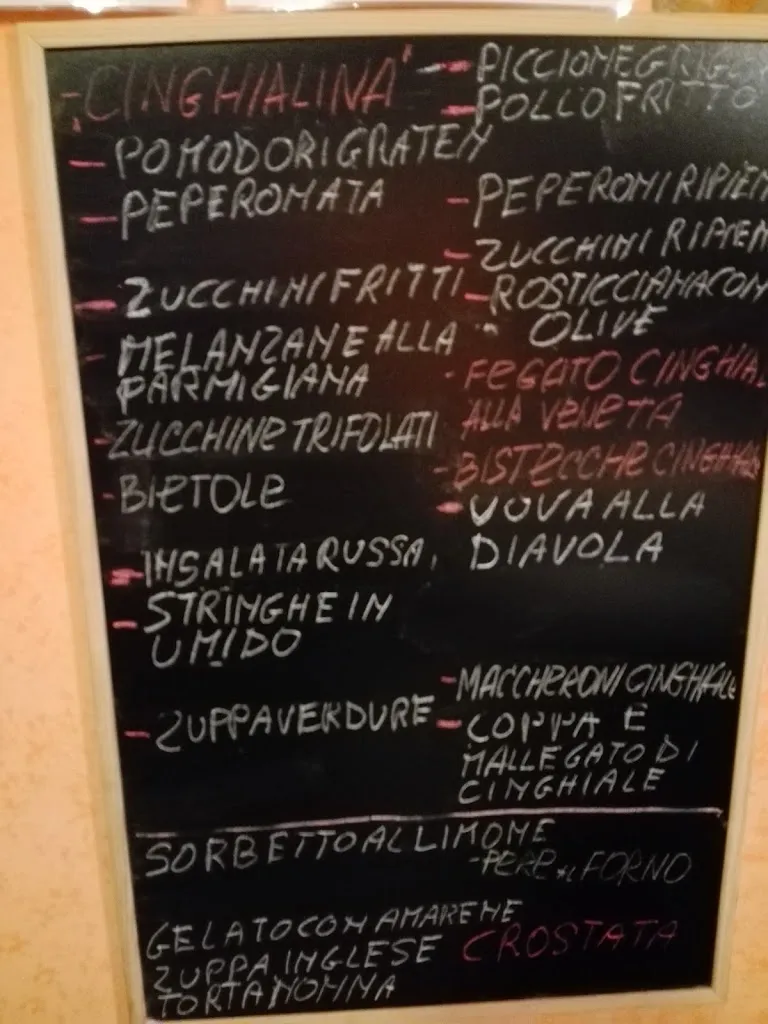 - CINGHIALINA
- POMODORI GRATEN
- PEPERONATA
- ZUCCHINI FRITTI
- MELANZANE ALLA
PARMIGIANA
- ZUCCHINE TRIFOLATI
- BIETOLE
- INSALATA RUSSA,
- STRINGHE IN
UMIDO
- ZUPPA VERDURE
- PICCIONE
- POLLO FRITTO
- PEPERONI RIPIEN
- ZUCCHINI RIPIEN
- ROSTICCIANA CON
OLIVE
- FEGATO CINGHIAL
ALLA VENETA
- BISTECCHE CINGHIALE
- UOVA ALLA
DIAVOLA
- MACCHERONI CINGHIALE
- COPPA E
MALLEGATO DI
CINGHIALE
SORBETTO AL LIMONE
- PERE AL FORNO
GELATO CON AMARENE
ZUPPA INGLESE
CROSTATA
TORTA NONNA